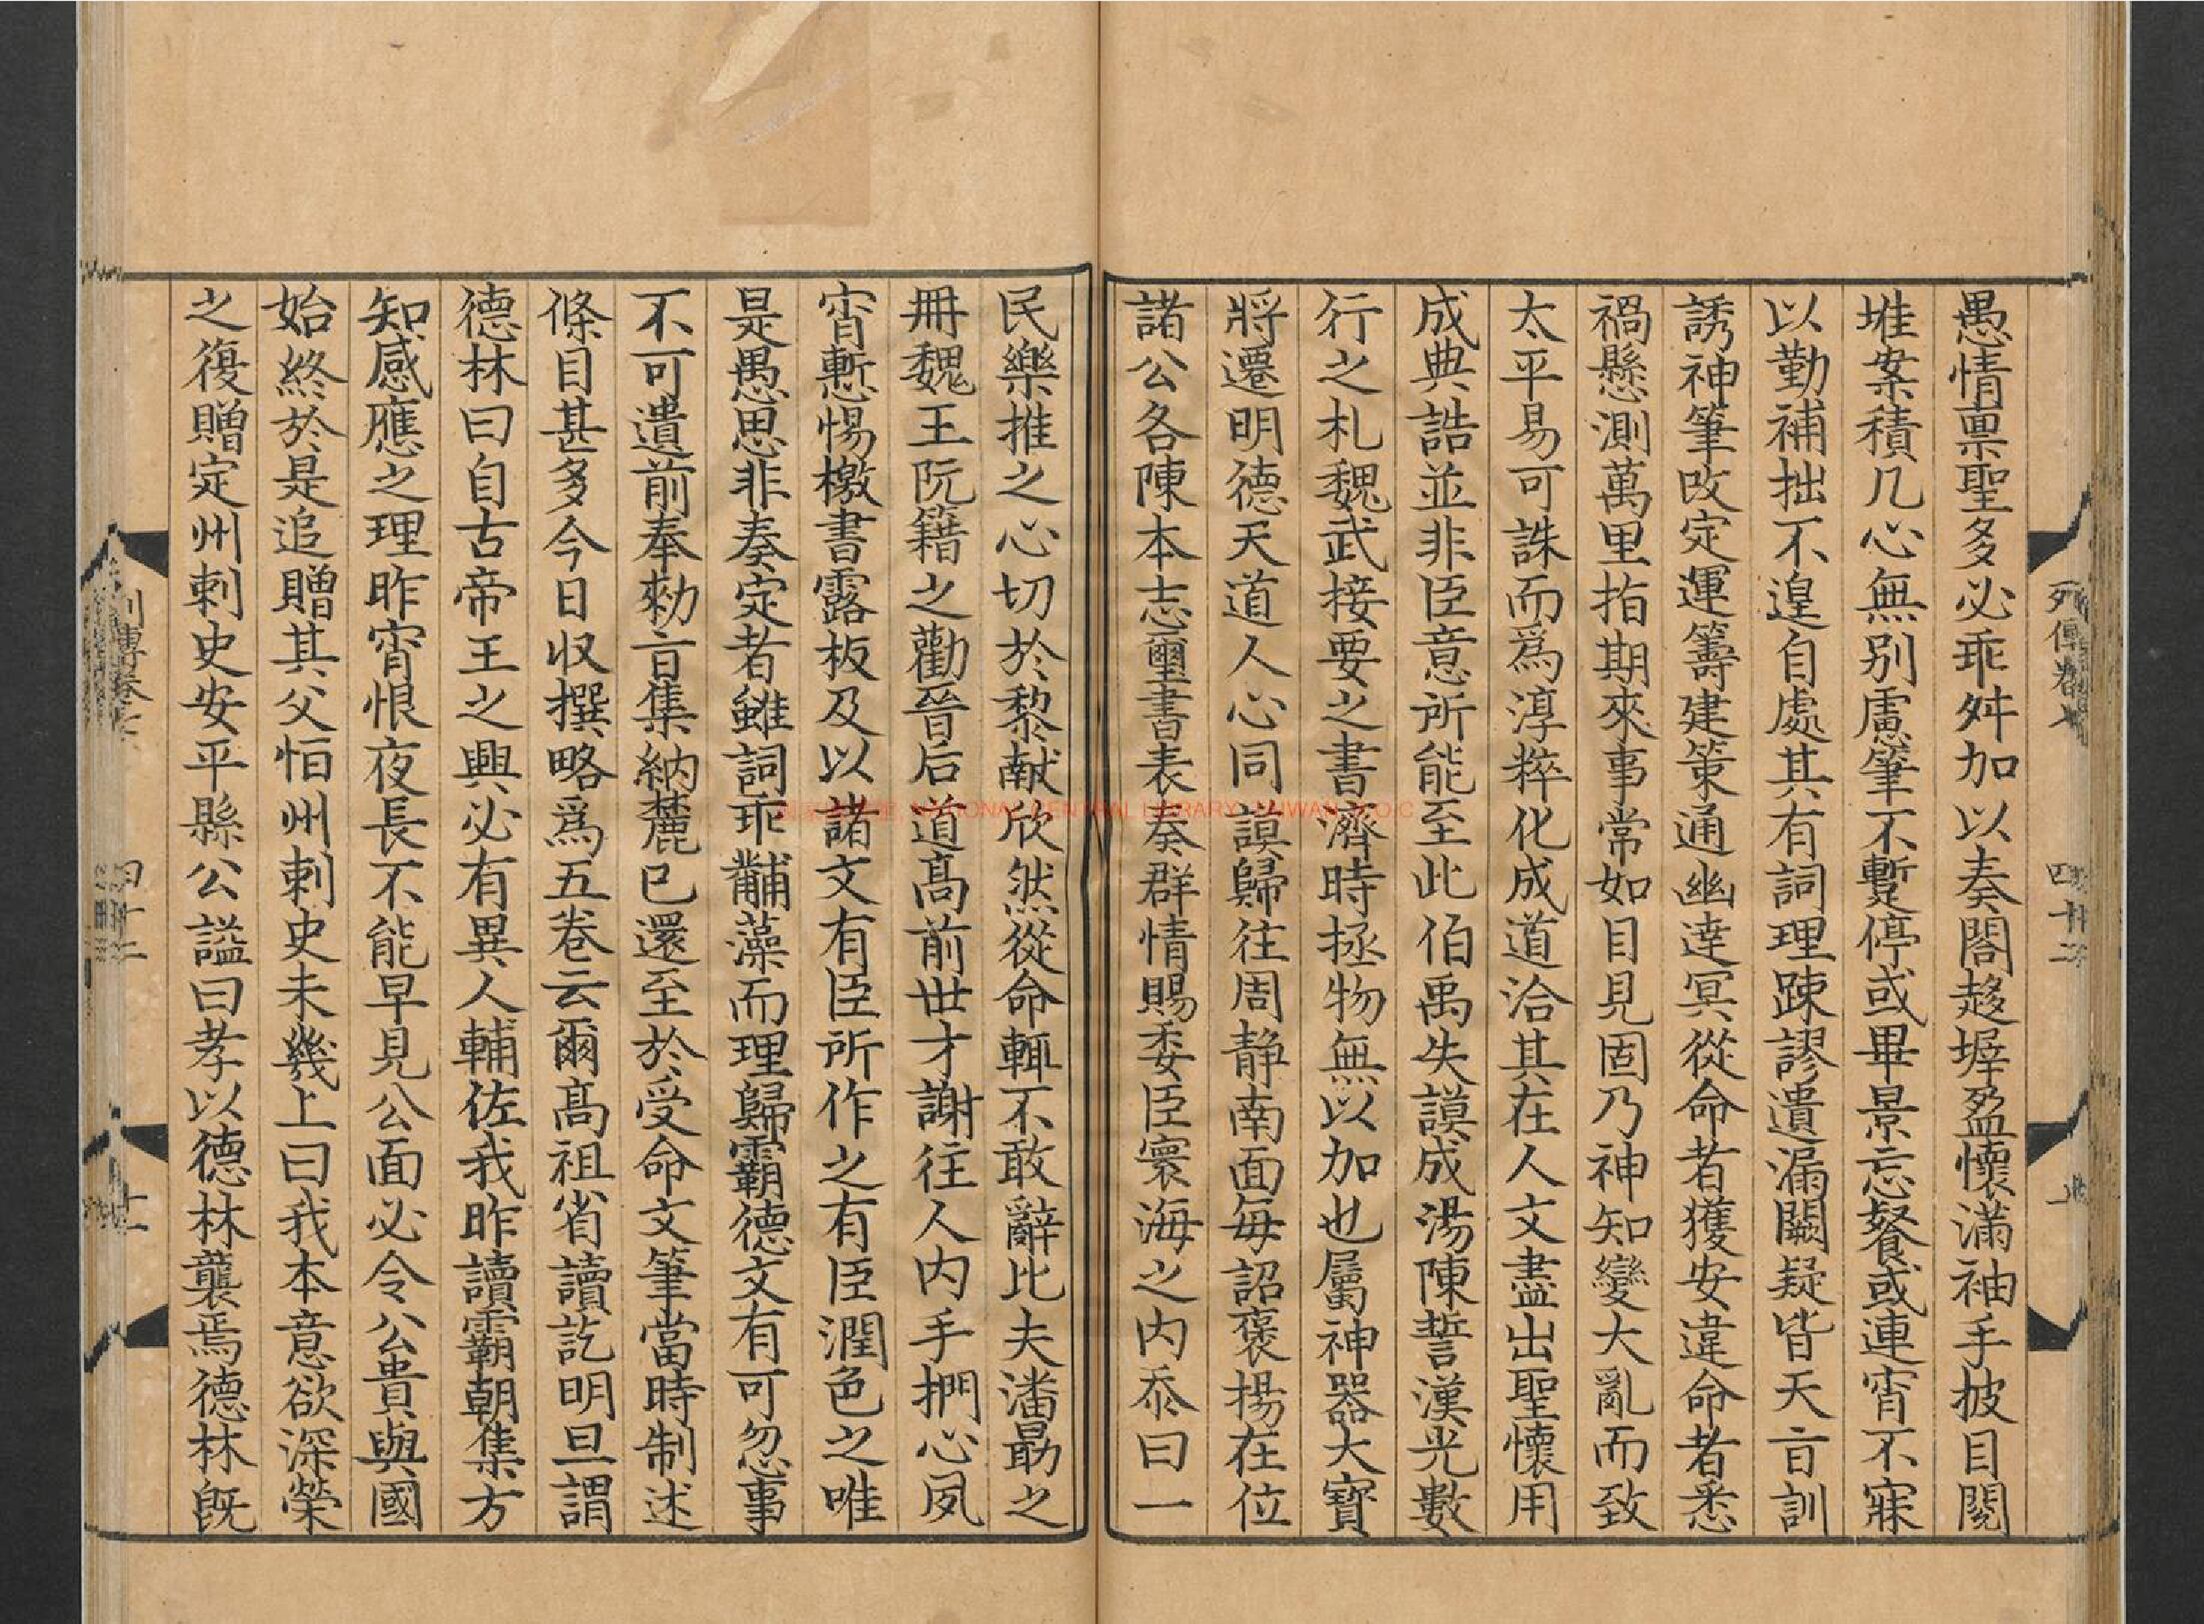 愚情禀聖多必乖舛加以奏閤趍墀盈懷滿袖手披目閱
堆案積几心無别慮筆不暫停或畢景忘餐或連宵不寐
以勤補拙不遑自處其有詞理踈謬遺漏闕疑皆天㫖訓
誘神筆改定運籌建策通幽達冥從命者獲安違命者悉
禍懸測萬里指期來事常如目見固乃神知變大亂而致
太平易可誅而爲淳粹化成道洽其在人文盡出聖懷用
成典誥並非臣意所能至此伯禹矢謨成湯陳誓漢光數
行之札魏武接要之書濟時拯物無以加也屬神器大寶
將遷明德天道人心同謨歸往周静南面每詔褒揚在位
諸公各陳本志璽書表奏群情賜委臣寰海之内忝曰一
民樂推之心切於黎献欣然從命輒不敢辭比夫潘勗之
冊魏王阮籍之勸晉后道髙前世才謝往人内手捫心夙
宵慙惕檄書露板及以諸文有臣所作之有臣潤色之唯
是愚思非奏定者雖詞乖黼藻而理歸霸德文有可忽事
不可遺前奉勑㫖集納麓已還至於受命文筆當時制述
條目甚多今日収撰略爲五卷云爾髙祖省讀訖明旦謂
德林曰自古帝王之興必有異人輔佐我昨讀霸朝集方
知感應之理昨宵恨夜長不能早見公面必令公貴與國
始終於是追贈其父恒州刺史未幾上曰我本意欲深榮
之復贈定州刺史安平縣公謚曰孝以德林襲焉德林既